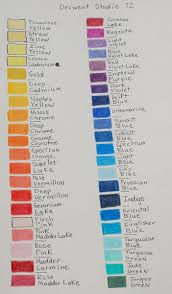 Derwent Studio 72
Primrose
Yellow
Straw
Yellow
Zinc
Yellow
Lemon
Cadmium
Gold
Deep
Cadmium
Naples
Yellow
Middle
Chrome
Deep
Chrome
Orange
Chrome
Spectrum
Orange
Scarlet
Lake
Pale
Vermilion
Deep
Vermilion
Geranium
Lake
Flesh
Pink
Pink
Madder Lake
Rose
Pink
Madder
Carmine
Rose
Madder Lake
Crimson
Lake
Magenta
Light
Violet
Blue
Violet Lake
Imperial
Purple
Dark
Violet
Delft
Blue
Ultramarine
Smalt
Blue
Cobalt
Blue
Spectrum
Blue
Light
Blue
Prussian
Blue
Indigo
Kingfisher
Blue
Turquoise
Blue
Turquoise
Green
Jade
Green